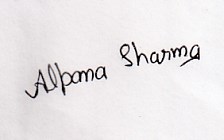 Alpana Sharma